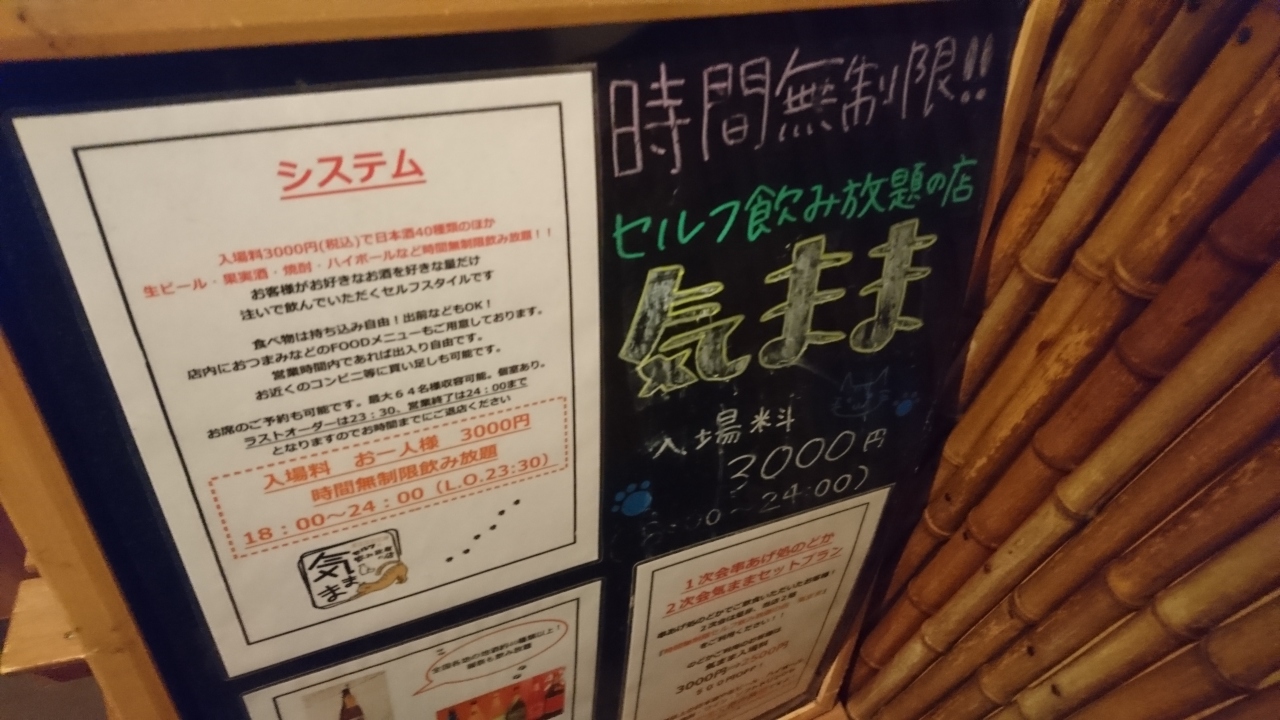 システム
入場料3000円(税込)で日本酒40種類のほか
生ビール・果実酒・焼酎・ハイボールなど時間無制限飲み放題！！
お客様がお好きなお酒を好きな量だけ
注いで飲んでいただくセルフスタイルです
食べ物は持ち込み自由！出前などもOK！
店内におつまみなどのFOODメニューもご用意しております。
営業時間内であれば出入り自由です。
お近くのコンビニ等に買い足しも可能です。
お席のご予約も可能です。最大６４名様収容可能。個室あり。
ラストオーダーは23：30、営業終了は24：00まで
となりますのでお時間までにご退店ください
入場料　お一人様　3000円
時間無制限飲み放題
18：00～24：00（L.O.23:30）
セルフ飲み放題の店
気まま
時間無制限!!
セルフ飲み放題の店
気まま
入場料
3000円
～24:00)
1次会串あげ処のどか
2次会気ままセットプラン
串あげ処のどかでご飲食いただいたお客様！
をご利用ください！！
気まま入場料
3000円⇒2500円
５００円OFF！